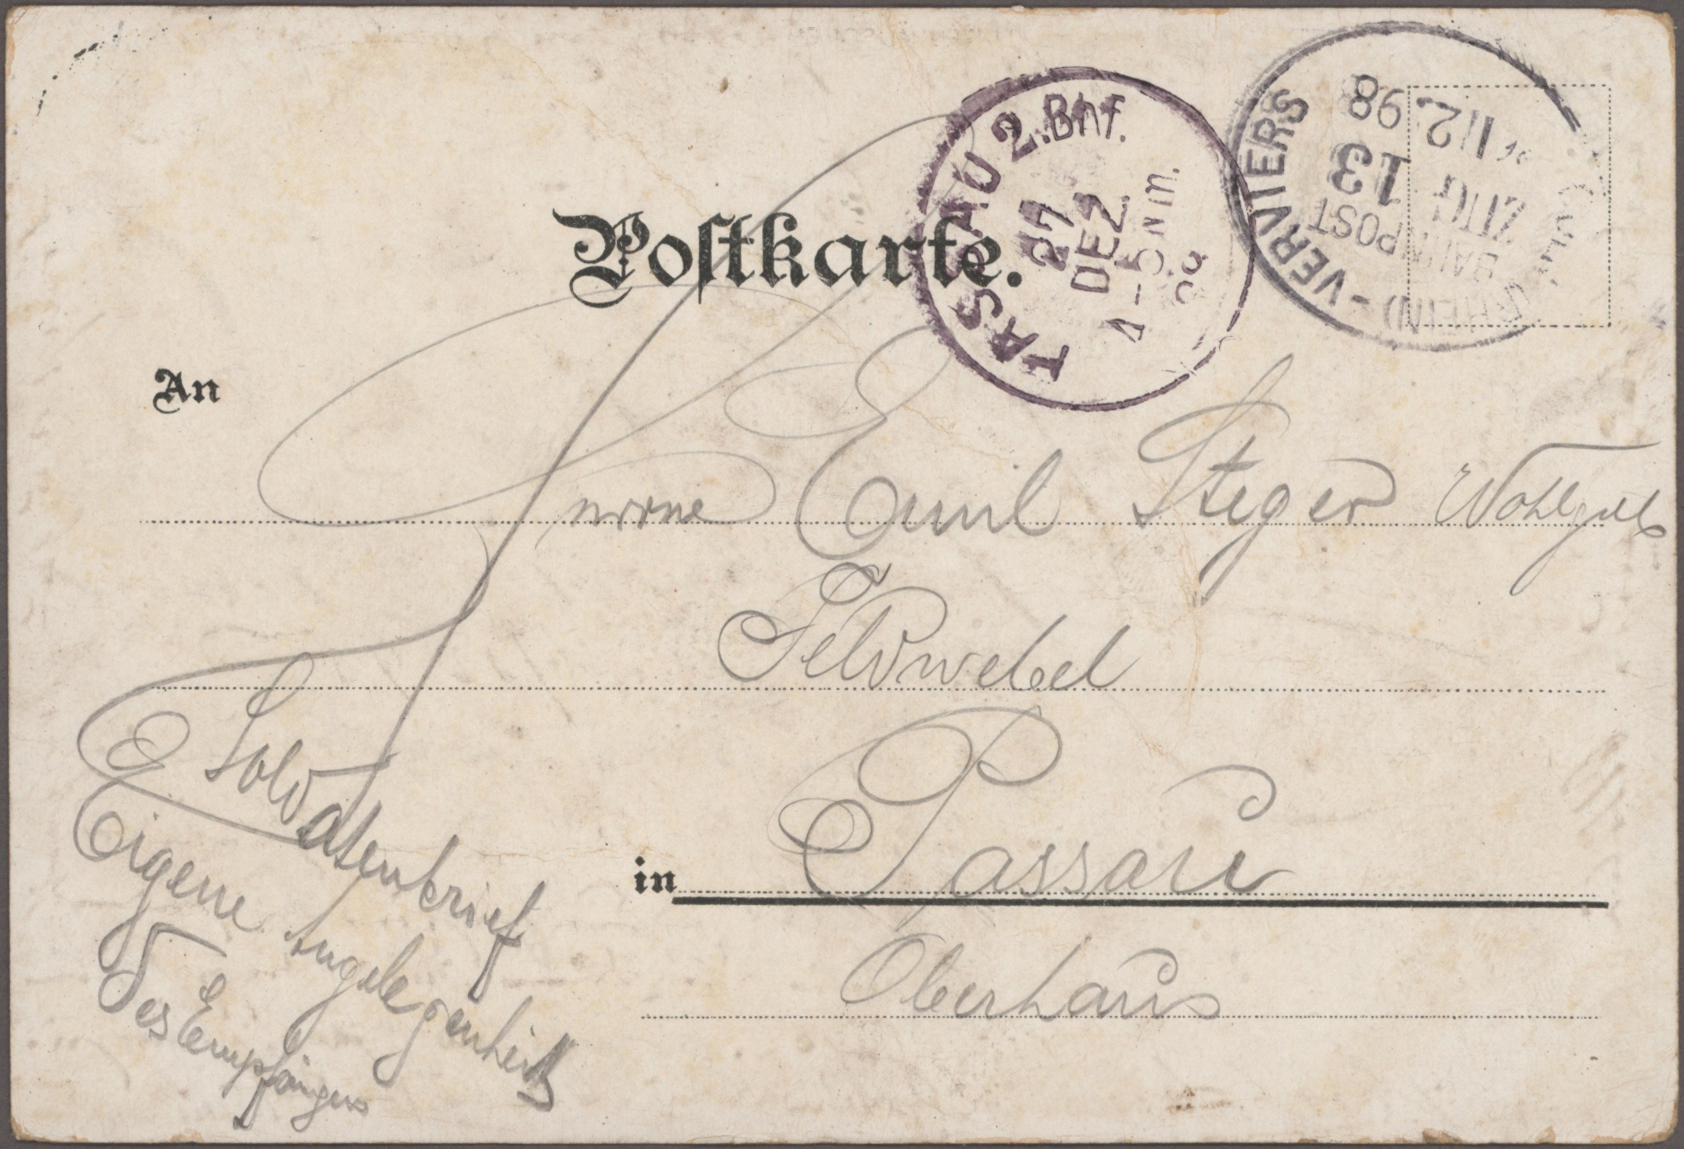 Postkarte.
PASSAU 2.Bhf.
27
DEZ
4-5 Nm.
98
(RHEIN) - VERVIERS
BAHNPOST
ZUG
13
12.98
An
Emil Steger Wohlgeb
Feldwebel
in Passau
Oberhaus
Soldatenbrief
Eigene Angelegenheit
des Empfängers